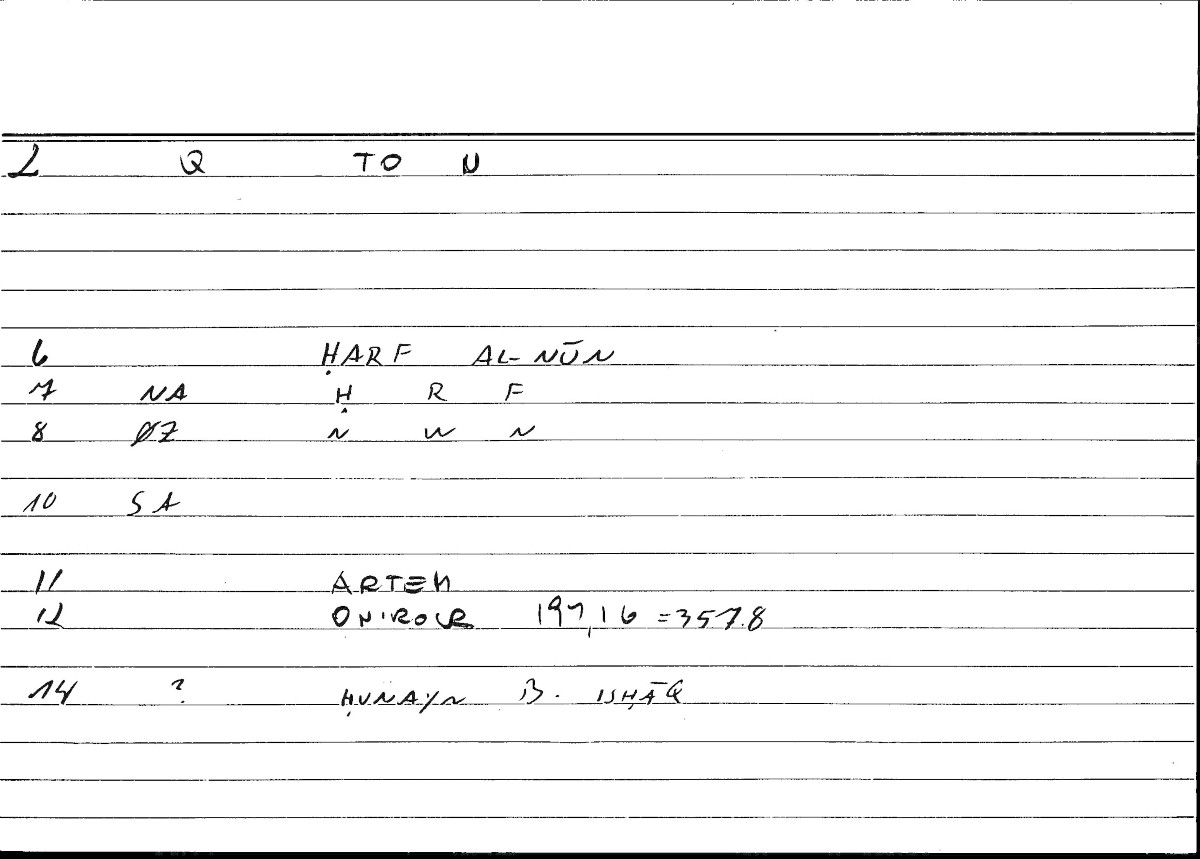 2 Q TO N
6 ḤARF AL-NŪN
7 NA Ḥ R F
8 ØZ N W N
10 SA
11 ARTEM
12 ONIROCR 197,16 =357.8
14 ? ḤUNAYN B. ISḤĀQ